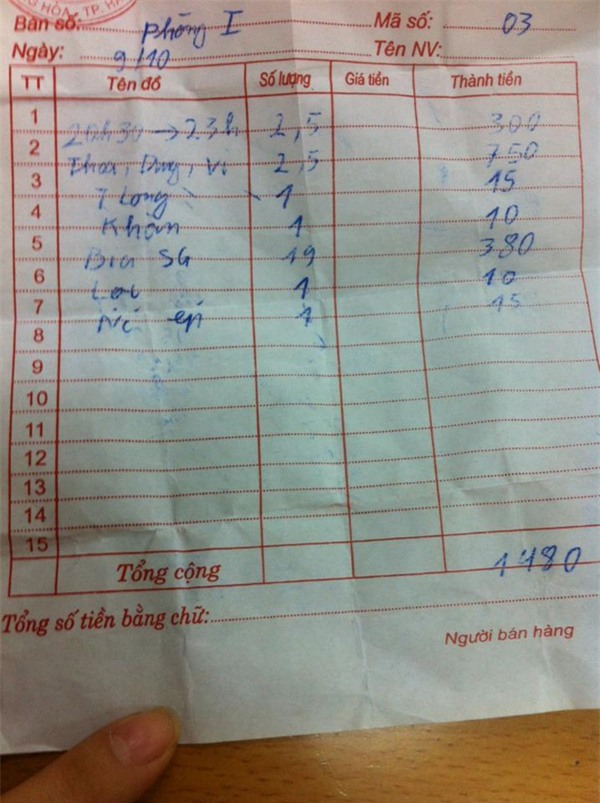 HÒA, TP. HÀ
Bàn số: Phòng I Mã số: 03
Ngày: 9/10 Tên NV:
TT Tên đồ Số lượng Giá tiền Thành tiền
1 20h30 → 23h 2,5 300
2 Thoa, Dung, Vi 2,5 750
3 T Long 1 15
4 Khăn 1 10
5 Bia SG 19 380
6 Lạc 1 10
7 ép 1 15
8
9
10
11
12
13
14
15
Tổng cộng 1480
Tổng số tiền bằng chữ:
Người bán hàng